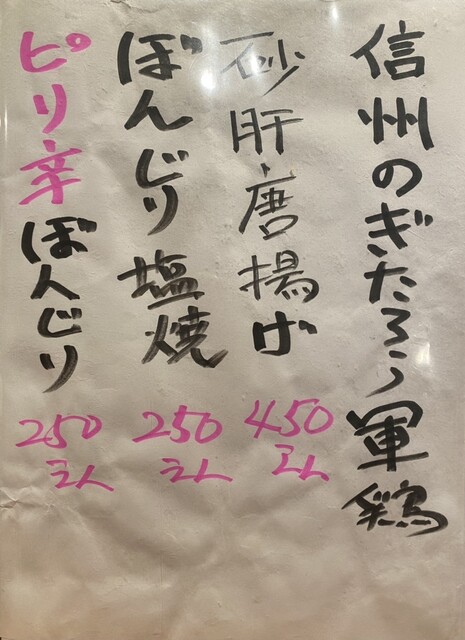 信州のぎたろう軍鶏
砂肝唐揚げ 450えん
ぼんじり塩焼 250えん
ピリ辛ぼんじり 250えん